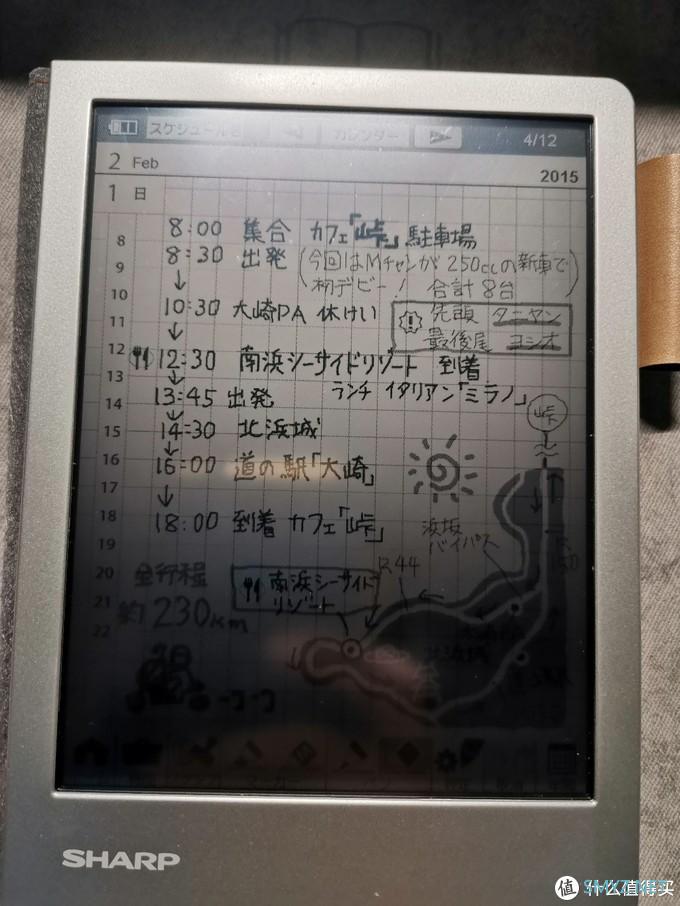 スケジュール
カレンダー
4/12
2 Feb
2015
1 日
8
9
10
11
12
13
14
15
16
17
18
19
20
21
22
8:00 集合 カフェ「峠」駐車場
8:30 出発 (今回はMチャンが250ccの新車で
初デビー! 合計8台)
10:30 大崎PA 休けい
! 先頭 タニヤン
最後尾 ヨシオ
12:30 南浜シーサイドリゾート 到着
ランチ イタリアン「ミラノ」
13:45 出発
14:30 北浜城
16:00 道の駅「大崎」
18:00 到着 カフェ「峠」
峠
浜坂
バイパス
R44
R150
全行程
約230km
南浜シーサイド
リゾート
北浜城
SHARP
值 什么值得买